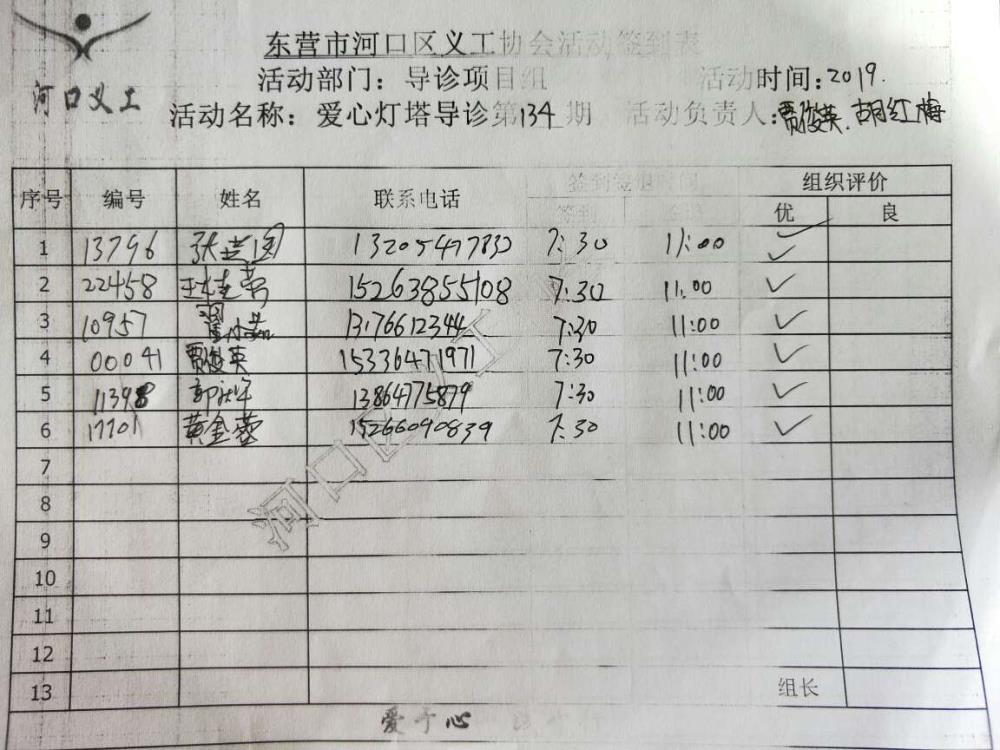 河口义工
东营市河口区义工协会活动签到表
活动部门：导诊项目组 活动时间：2019.
活动名称：爱心灯塔导诊第134期 活动负责人：贾俊英.胡红梅
序号 编号 姓名 联系电话 签到签退时间 组织评价
签到 优 良
1 13796 7:30 11:00 ✓
2 22458 15263855108 7:30 11:00 ✓
3 10957 13176612344 7:30 11:00 ✓
4 00041 贾俊英 15336471971 7:30 11:00 ✓
5 11398 13864775879 7:30 11:00 ✓
6 黄金蓉 15266090839 7:30 11:00 ✓
7
8
9
10
11
12
13 组长
河口区义工
爱 心